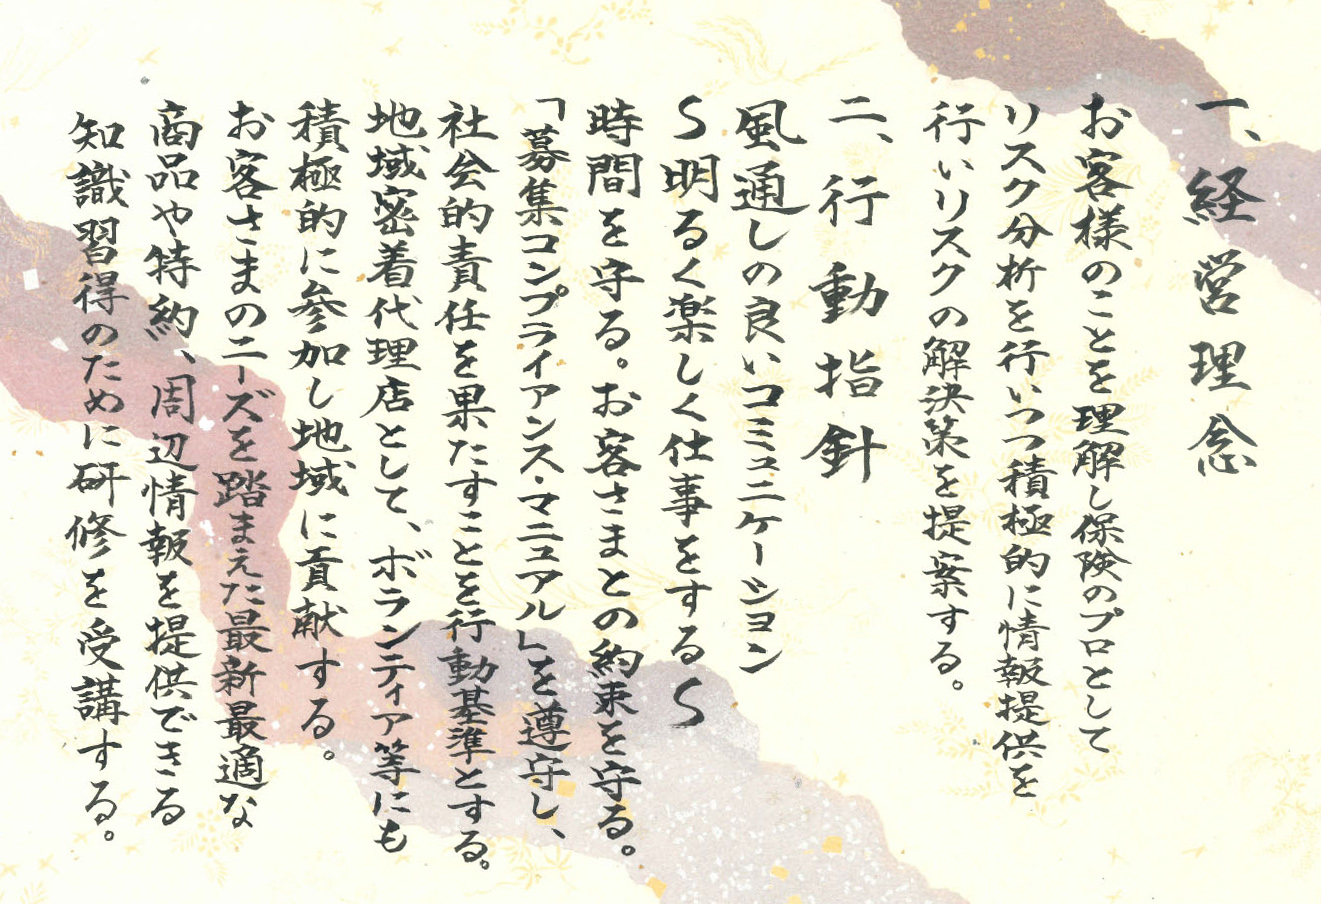 一、経営理念
お客様のことを理解し保険のプロとして
リスク分析を行いつつ積極的に情報提供を
行いリスクの解決策を提案する。
二、行動指針
風通しの良いコミュニケーション
〜明るく楽しく仕事をする〜
時間を守る。お客さまとの約束を守る。
「募集コンプライアンス・マニュアル」を遵守し、
社会的責任を果たすことを行動基準とする。
地域密着代理店として、ボランティア等にも
積極的に参加し地域に貢献する。
お客さまのニーズを踏まえた最新最適な
商品や特約、周辺情報を提供できる
知識習得のために研修を受講する。